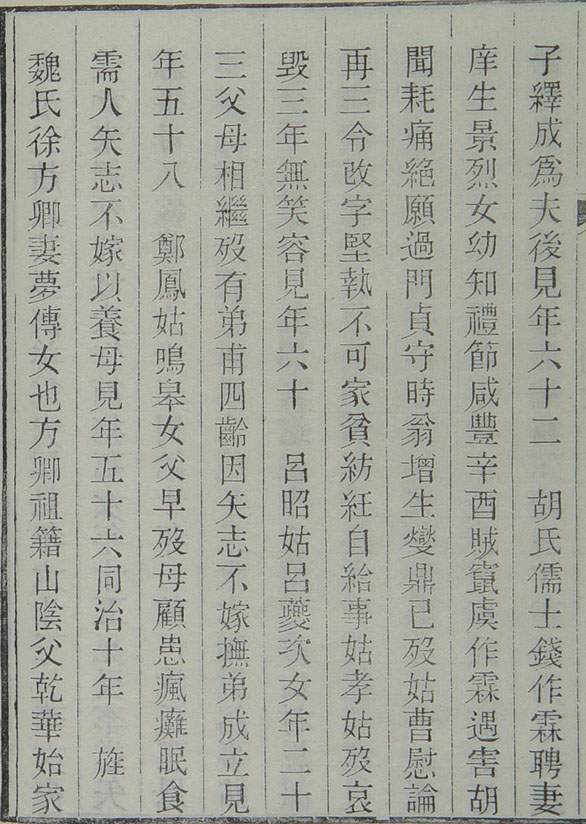 子繹成爲夫後見年六十二　胡氏儒士錢作霖聘妻
庠生景烈女幼知禮節咸豐辛酉賊竄虞作霖遇害胡
聞耗痛絶願過門貞守時翁增生燮鼎已歿姑曹慰論
再三令改字堅執不可家貧紡紝自給事姑孝姑歿哀
毀三年無笑容見年六十　呂昭姑呂夔次女年二十
三父母相繼歿有弟甫四齡因矢志不嫁撫弟成立見
年五十八　鄭鳳姑鳴皋女父早歿母顧患瘋癱眠食
需人矢志不嫁以養母見年五十六同治十年　旌
魏氏徐方卿妻夢傳女也方卿祖籍山陰父乾華始家